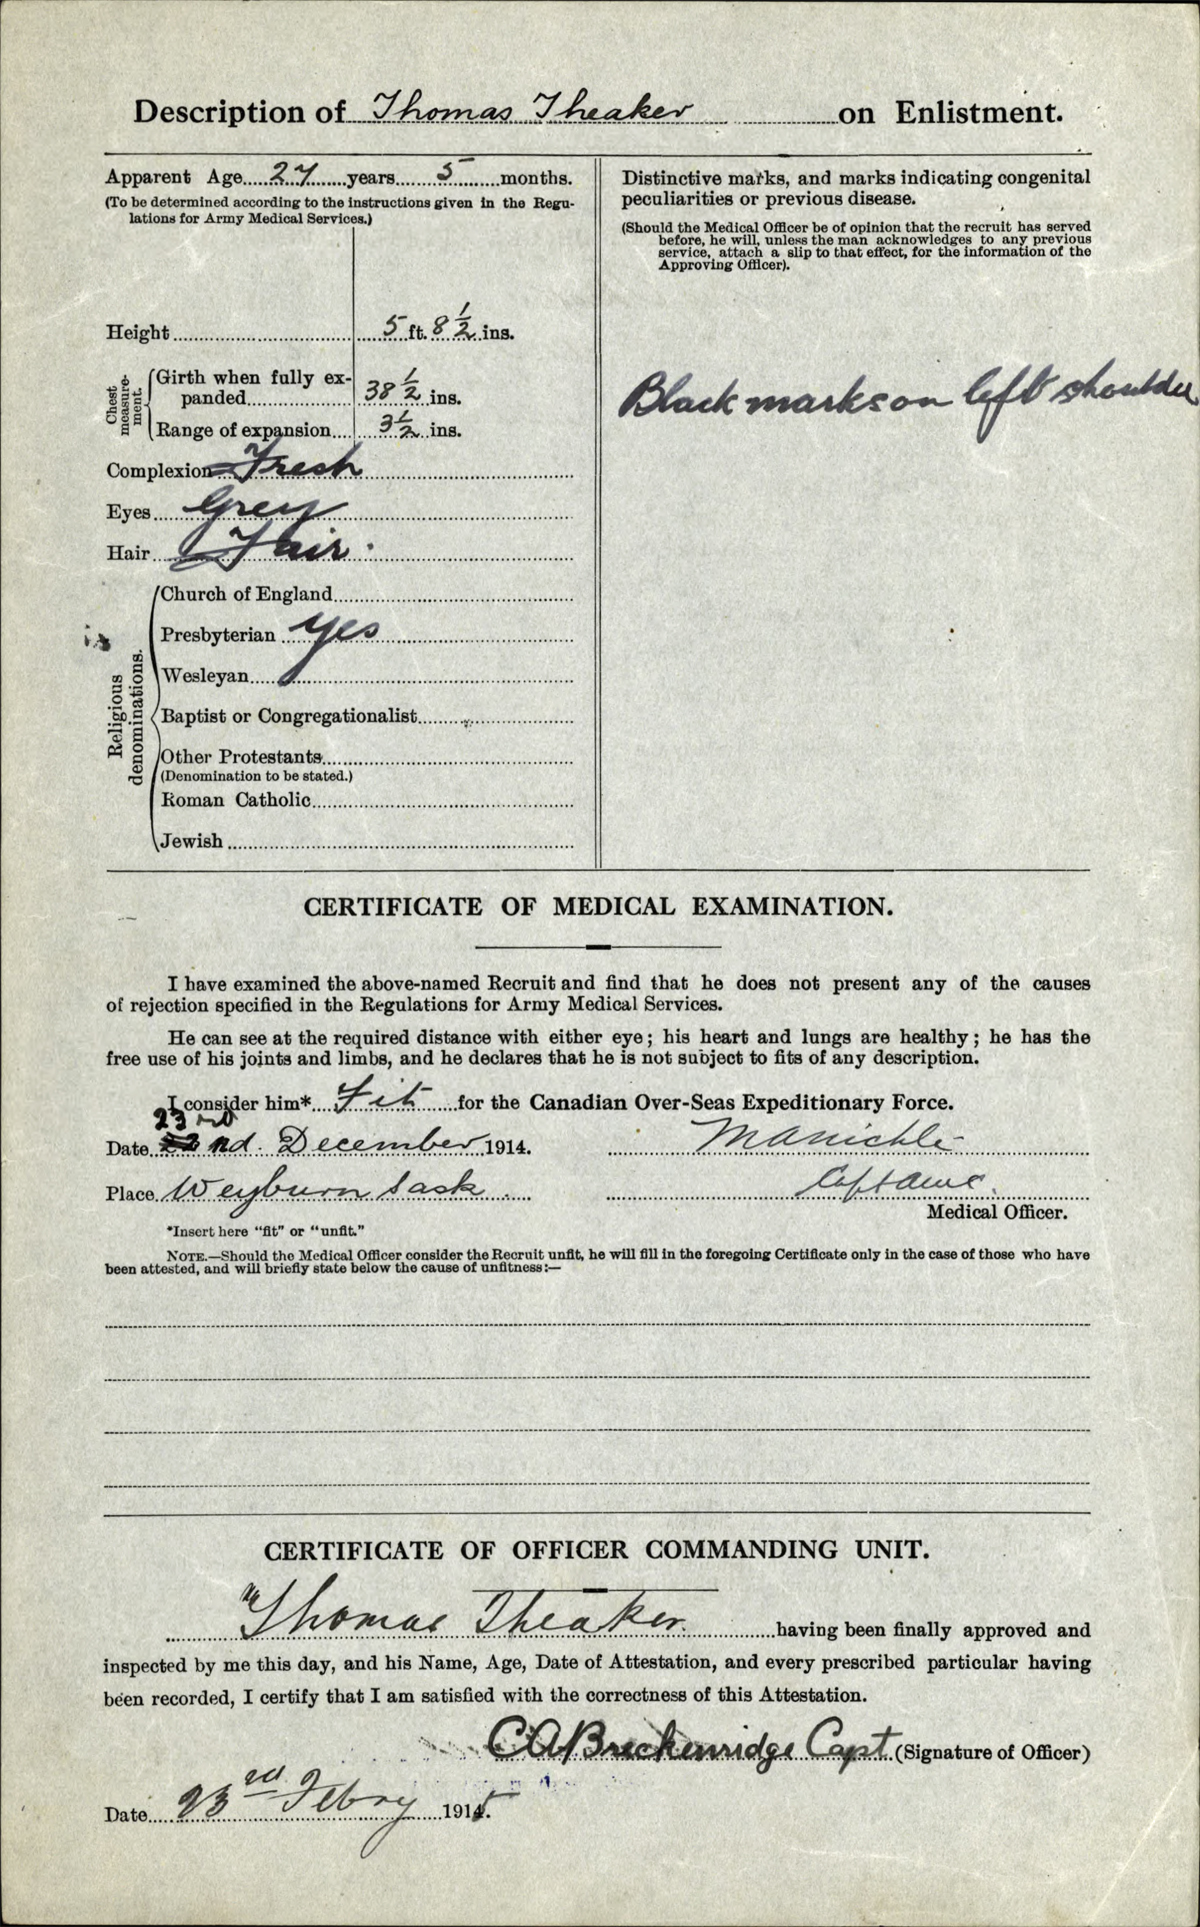 Description of Thomas Theaker on Enlistment.
Apparent Age 27 years 5 months.
(To be determined according to the instructions given in the Regu-
lations for Army Medical Services.)
Height 5 ft. 8 1/2 ins.
Chest measure-ment.
Girth when fully ex-
panded 38 1/2 ins.
Range of expansion 3 1/2 ins.
Complexion Fresh
Eyes Grey
Hair Fair
Religious denominations.
Church of England
Presbyterian yes
Wesleyan
Baptist or Congregationalist
Other Protestants
(Denomination to be stated.)
Roman Catholic
Jewish
Distinctive marks, and marks indicating congenital
peculiarities or previous disease.
(Should the Medical Officer be of opinion that the recruit has served
before, he will, unless the man acknowledges to any previous
service, attach a slip to that effect, for the information of the
Approving Officer).
Black marks on left shoulder
CERTIFICATE OF MEDICAL EXAMINATION.
I have examined the above-named Recruit and find that he does not present any of the causes
of rejection specified in the Regulations for Army Medical Services.
He can see at the required distance with either eye; his heart and lungs are healthy; he has the
free use of his joints and limbs, and he declares that he is not subject to fits of any description.
I consider him* Fit for the Canadian Over-Seas Expeditionary Force.
23rd
Date 22nd. December 1914.
Place Weyburn Sask
Medical Officer.
*Insert here "fit" or "unfit."
NOTE.—Should the Medical Officer consider the Recruit unfit, he will fill in the foregoing Certificate only in the case of those who have
been attested, and will briefly state below the cause of unfitness:—
CERTIFICATE OF OFFICER COMMANDING UNIT.
Thomas Theaker. having been finally approved and
inspected by me this day, and his Name, Age, Date of Attestation, and every prescribed particular having
been recorded, I certify that I am satisfied with the correctness of this Attestation.
CA Breckenridge Capt. (Signature of Officer)
Date 23rd Febry 1915.